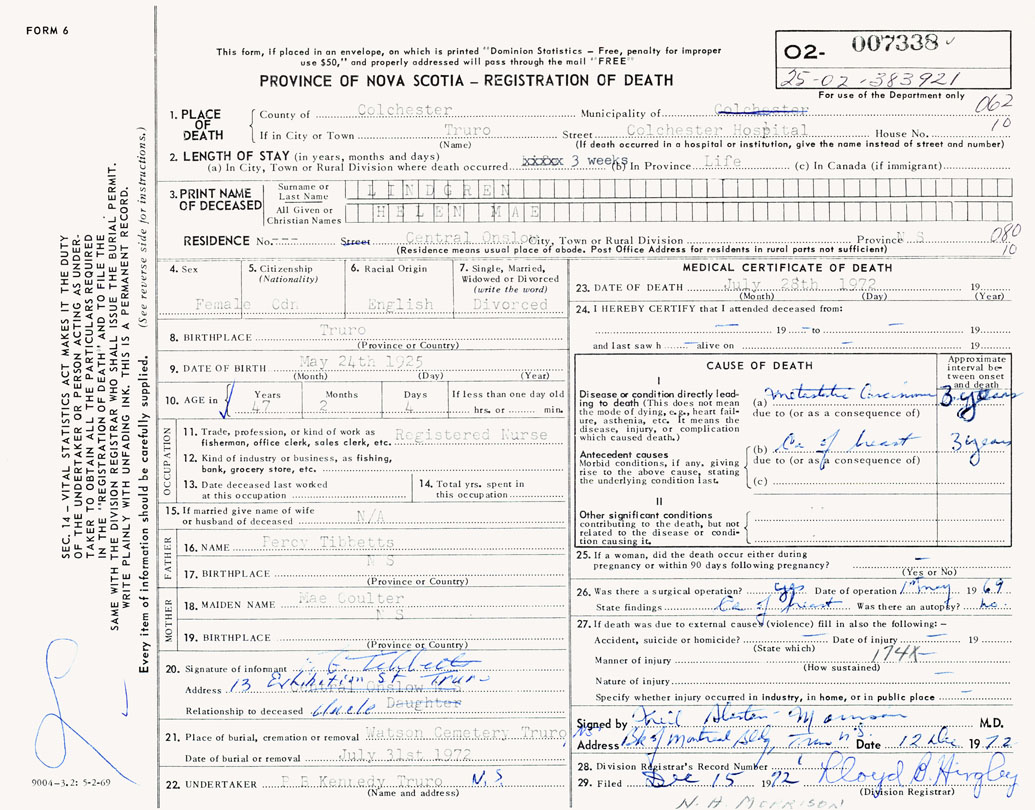 FORM 6
This form, if placed in an envelope, on which is printed "Dominion Statistics – Free, penalty for improper
use $50," and properly addressed will pass through the mail "FREE"
PROVINCE OF NOVA SCOTIA – REGISTRATION OF DEATH
O2- 007338
25-02-383921
For use of the Department only
062
10
1. PLACE OF DEATH
County of Colchester Municipality of Colchester
If in City or Town Truro Street Colchester Hospital House No.
(Name) (If death occurred in a hospital or institution, give the name instead of street and number)
2. LENGTH OF STAY (in years, months and days)
(a) In City, Town or Rural Division where death occurred xxxxx 3 weeks (b) In Province Life (c) In Canada (if immigrant)
3. PRINT NAME OF DECEASED
Surname or Last Name LINDGREN
All Given or Christian Names HELEN MAE
RESIDENCE No. --- Street Central Onslow City, Town or Rural Division Province N S
(Residence means usual place of abode. Post Office Address for residents in rural parts not sufficient)
080
10
4. Sex 5. Citizenship (Nationality) 6. Racial Origin 7. Single, Married, Widowed or Divorced (write the word)
Female Cdn English Divorced
8. BIRTHPLACE Truro
(Province or Country)
9. DATE OF BIRTH May 24th 1925
(Month) (Day) (Year)
10. AGE in Years Months Days If less than one day old
47 2 4 hrs. or min.
OCCUPATION
11. Trade, profession, or kind of work as
fisherman, office clerk, sales clerk, etc. Registered Nurse
12. Kind of industry or business, as fishing,
bank, grocery store, etc.
13. Date deceased last worked
at this occupation
14. Total yrs. spent in
this occupation
15. If married give name of wife
or husband of deceased N/A
FATHER
16. NAME Percy Tibbetts
N S
17. BIRTHPLACE
(Province or Country)
MOTHER
18. MAIDEN NAME Mae Coulter
N S
19. BIRTHPLACE
(Province or Country)
20. Signature of informant G Tibbetts
Address 13 Exhibition St Truro
Central Onslow N S
Relationship to deceased Uncle Daughter
21. Place of burial, cremation or removal Watson Cemetery Truro, NS
Date of burial or removal July 31st 1972
22. UNDERTAKER P B Kentedy Truro N.S
(Name and address)
MEDICAL CERTIFICATE OF DEATH
23. DATE OF DEATH July 28th 1972 19
(Month) (Day) (Year)
24. I HEREBY CERTIFY that I attended deceased from:
— 19 — to — 19
and last saw h — alive on — 19
CAUSE OF DEATH
Approximate interval between onset and death
I
Disease or condition directly leading to death (This does not mean the mode of dying, e.g., heart failure, asthenia, etc. It means the disease, injury, or complication which caused death.)
(a) Metastatic Carcinoma 3 years
due to (or as a consequence of)
Antecedent causes
Morbid conditions, if any, giving rise to the above cause, stating the underlying condition last.
(b) Ca of breast 3 years
due to (or as a consequence of)
(c)
II
Other significant conditions
contributing to the death, but not related to the disease or condition causing it.
25. If a woman, did the death occur either during
pregnancy or within 90 days following pregnancy? —
(Yes or No)
26. Was there a surgical operation? yes Date of operation 1st May 1969
State findings Ca of breast Was there an autopsy? no
27. If death was due to external causes (violence) fill in also the following: –
Accident, suicide or homicide? — Date of injury — 19
(State which)
174X
Manner of injury —
(How sustained)
Nature of injury —
Specify whether injury occurred in industry, in home, or in public place —
Signed by Neil Morrison M.D.
Address Bk of Montreal Bldg, Truro NS Date 12 Dec 1972
28. Division Registrar's Record Number
29. Filed Dec 15 1972 Lloyd B. Hingley
(Division Registrar)
N. A. MORRISON
SEC. 14 – VITAL STATISTICS ACT MAKES IT THE DUTY
OF THE UNDERTAKER OR PERSON ACTING AS UNDER-
TAKER TO OBTAIN ALL THE PARTICULARS REQUIRED
IN THE "REGISTRATION OF DEATH" AND TO FILE THE
SAME WITH THE DIVISION REGISTRAR WHO SHALL ISSUE THE BURIAL PERMIT.
WRITE PLAINLY WITH UNFADING INK. THIS IS A PERMANENT RECORD.
Every item of information should be carefully supplied. (See reverse side for instructions.)
9004-3.2: 5-2-69